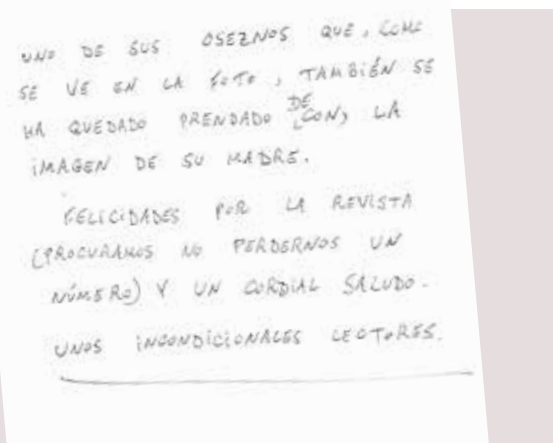 UNO DE SUS OSEZNOS QUE, COMO
SE VE EN LA FOTO, TAMBIÉN SE
HA QUEDADO PRENDADO DE (CON) LA
IMAGEN DE SU MADRE.
FELICIDADES POR LA REVISTA
(PROCURAMOS NO PERDERNOS UN
NÚMERO) Y UN CORDIAL SALUDO.
UNOS INCONDICIONALES LECTORES.